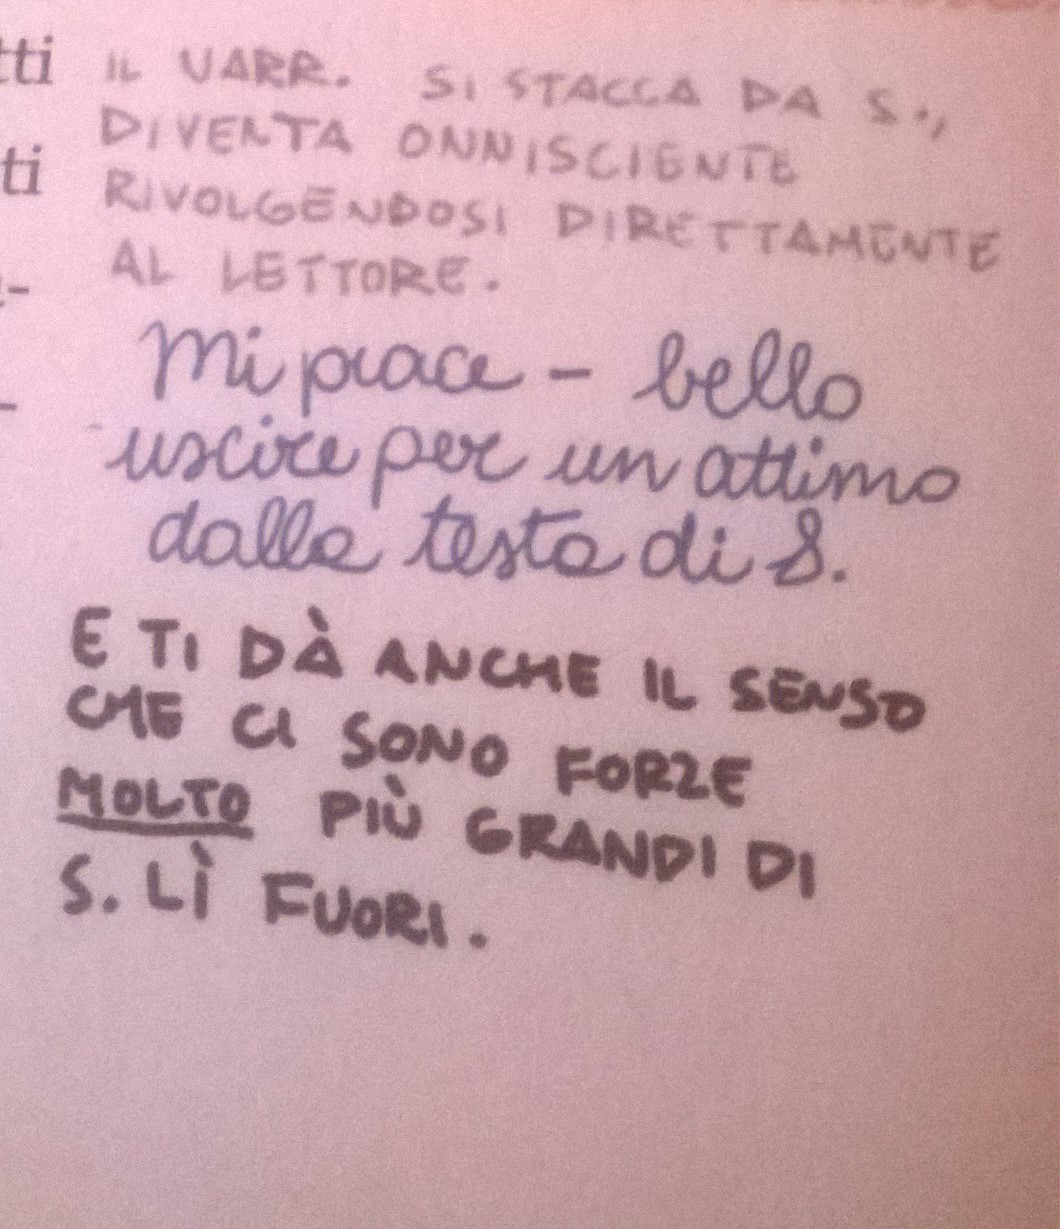 tti
ti
-
-
IL NARR. SI STACCA DA S.,
DIVENTA ONNISCIENTE
RIVOLGENDOSI DIRETTAMENTE
AL LETTORE.
Mi piace – bello
uscire per un attimo
dalla testa di S.
E TI DÀ ANCHE IL SENSO
CHE CI SONO FORZE
MOLTO PIÙ GRANDI DI
S. LÌ FUORI.